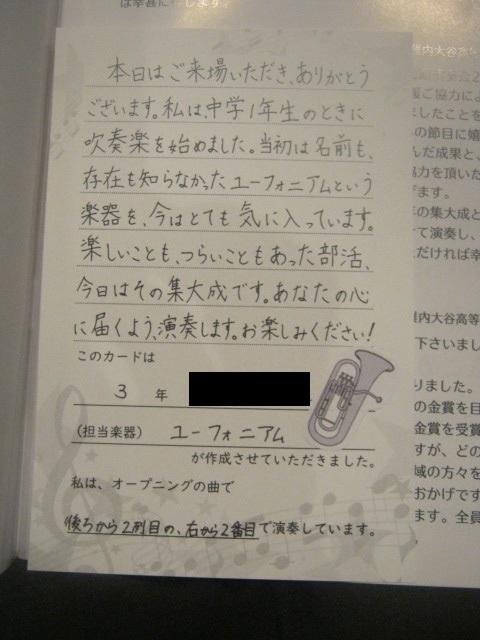 は幸甚に存じます。
本日はご来場いただき、ありがとう
ございます。私は、中学1年生のときに
吹奏楽を始めました。当初は名前も、
存在も知らなかったユーフォニアムという
楽器を、今はとても気に入っています。
楽しいことも、つらいこともあった部活、
今日はその集大成です。あなたの心
に届くよう、演奏します。お楽しみください!
このカードは
3 年
(担当楽器) ユーフォニアム
が作成させていただきました。
私は、オープニングの曲で
後ろから2列目の、右から2番目で演奏しています。
稚内大谷高
ご協力によ
ましたことを
の節目に嬉
んだ成果と、
協力を頂いた
げます。
の集大成と
て演奏し、
ただければ幸
稚内大谷高等
下さいまし
りました。
の金賞を目
金賞を受賞
すが、どの
域の方々を
おかげです
ます。全員